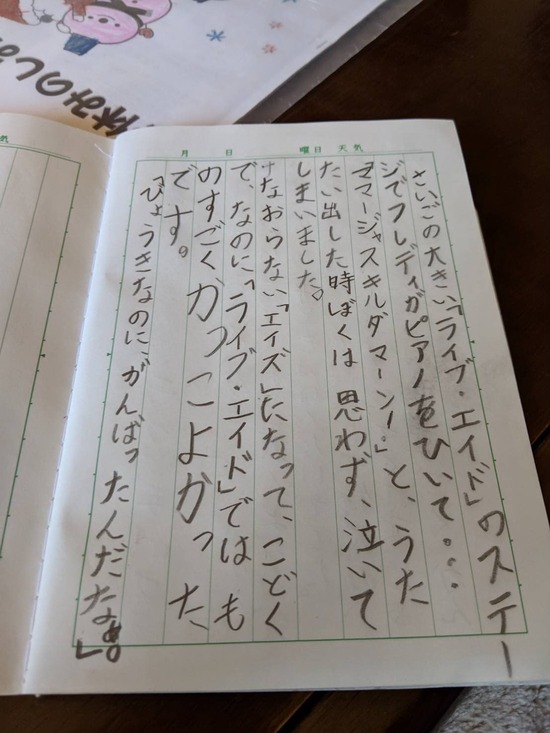 休みのし
気
月 日 曜日 天気
さいごの大きい「ライブ・エイド」のステー
ジでフレディがピアノをひいて・・・
「ママージャスキルダマーン!。」と、うた
たい出した時ぼくは思わず、泣いて
しまいました。
なおらない「エイズ」になって、こどく
で、なのに「ライブ・エイド」ではも
のすごくかっこよかった
です。
「びょうきなのに、がんばったんだなぁ。」